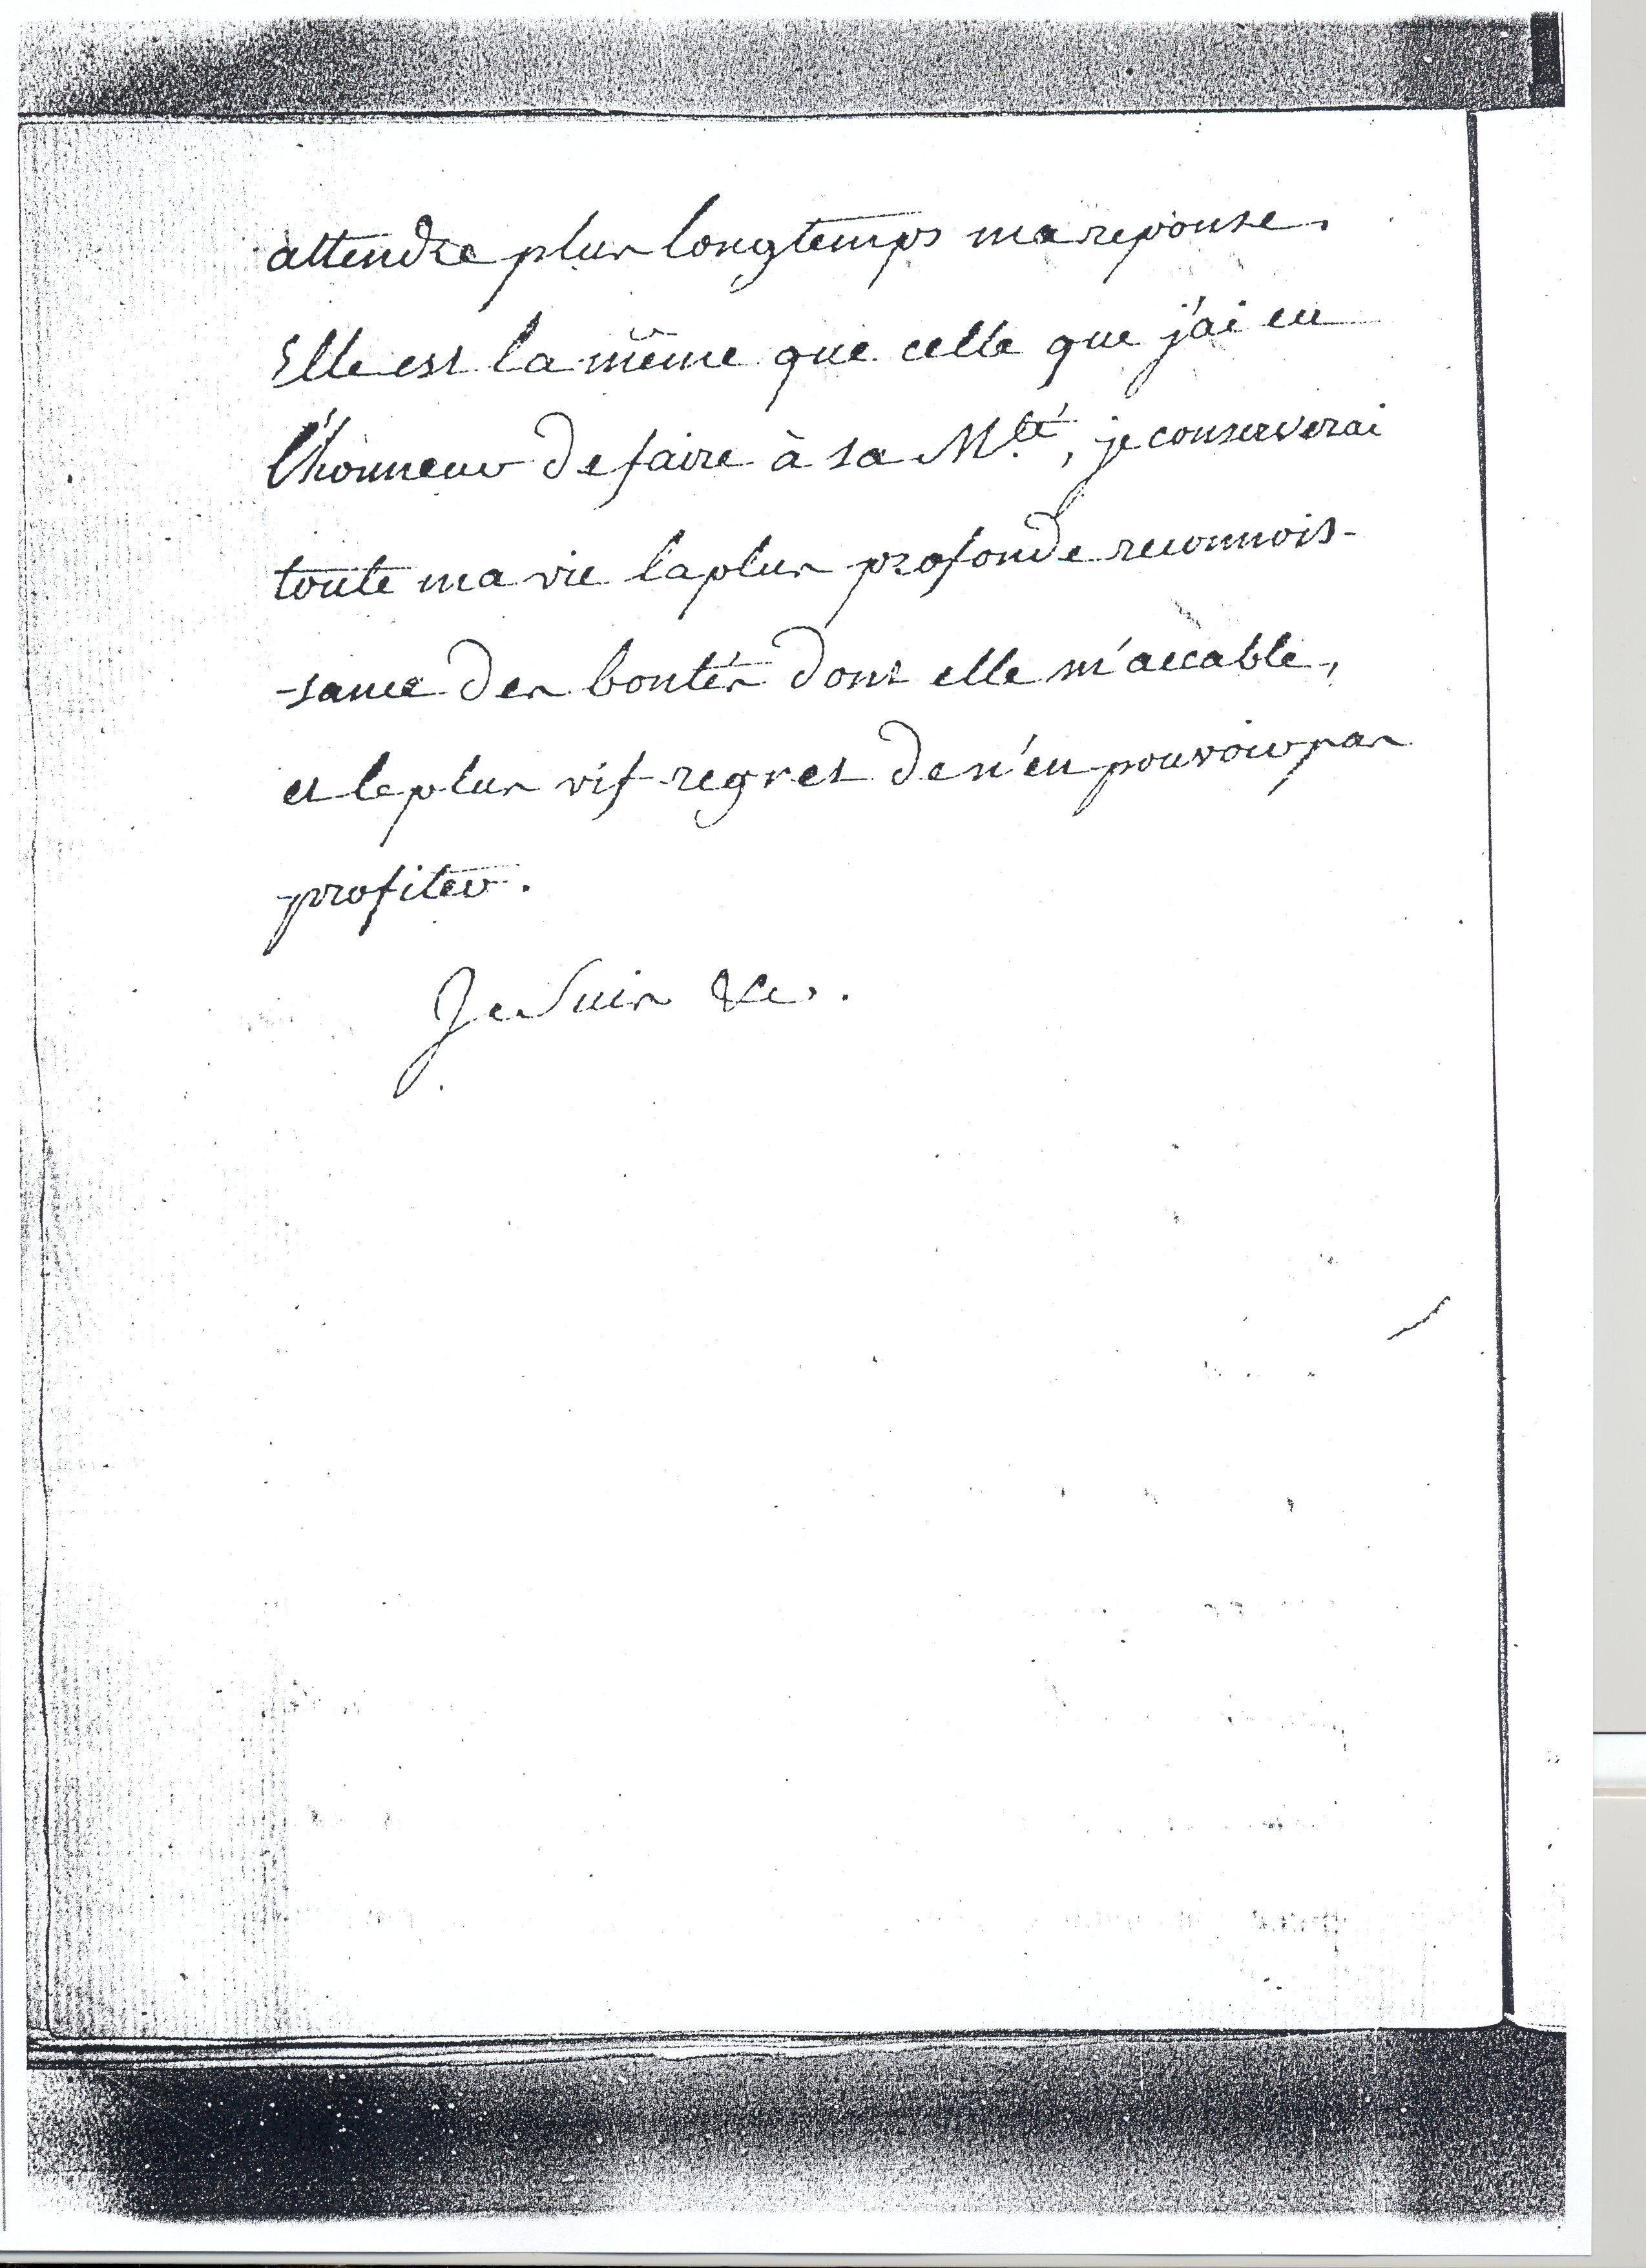 attendre plus longtemps ma reponse.
Elle est la même que celle que j'ai eu
l'honneur de faire à sa M.té, je conserverai
toute ma vie la plus profonde reconnois-
-sance des bontés dont elle m'accable,
et le plus vif regret de n'en pouvoir pas
profiter.
Je suis &c.